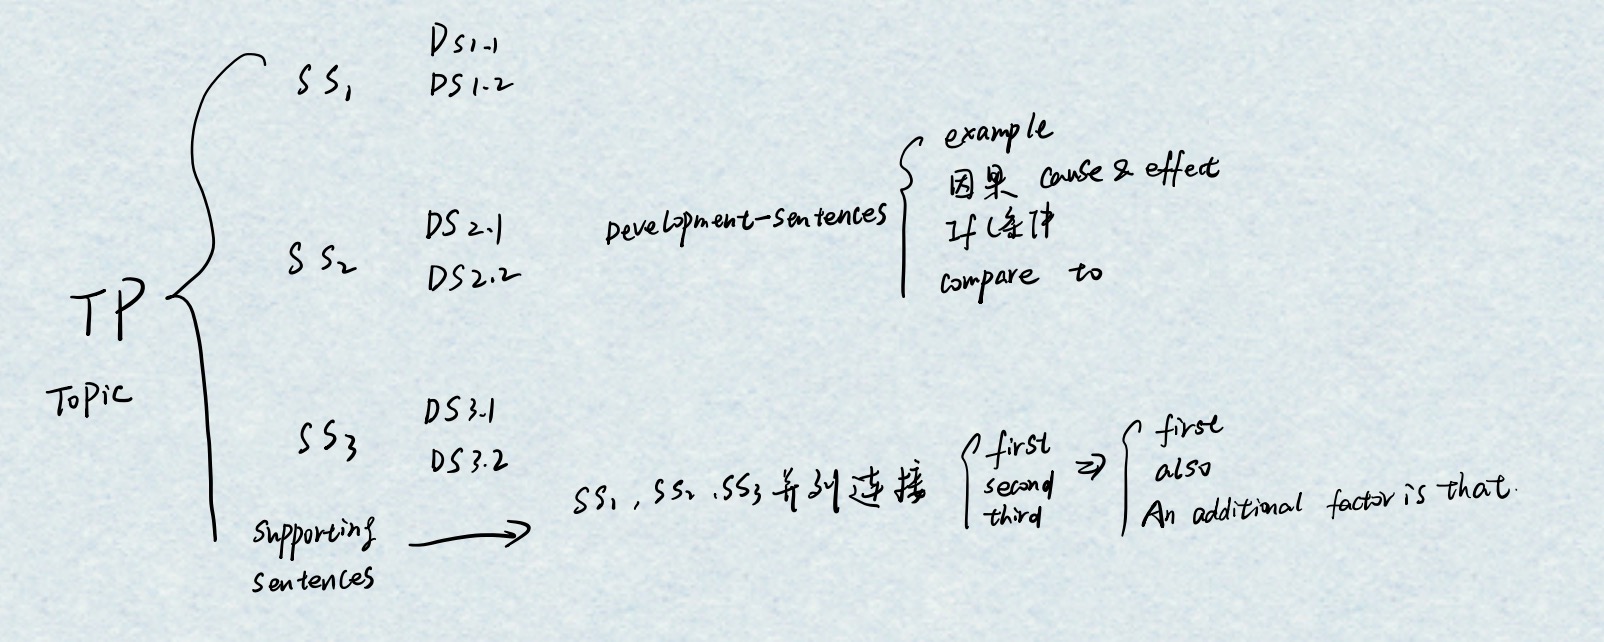 DS1.1
SS1 DS1.2
example
因果 cause & effect
DS2.1 Development-sentences If 条件
SS2 DS2.2 compare to
TP
Topic
DS3.1
SS3 DS3.2
first first
SS1, SS2, SS3 并列连接 second ⇒ also
third An additional factor is that.
supporting
sentences